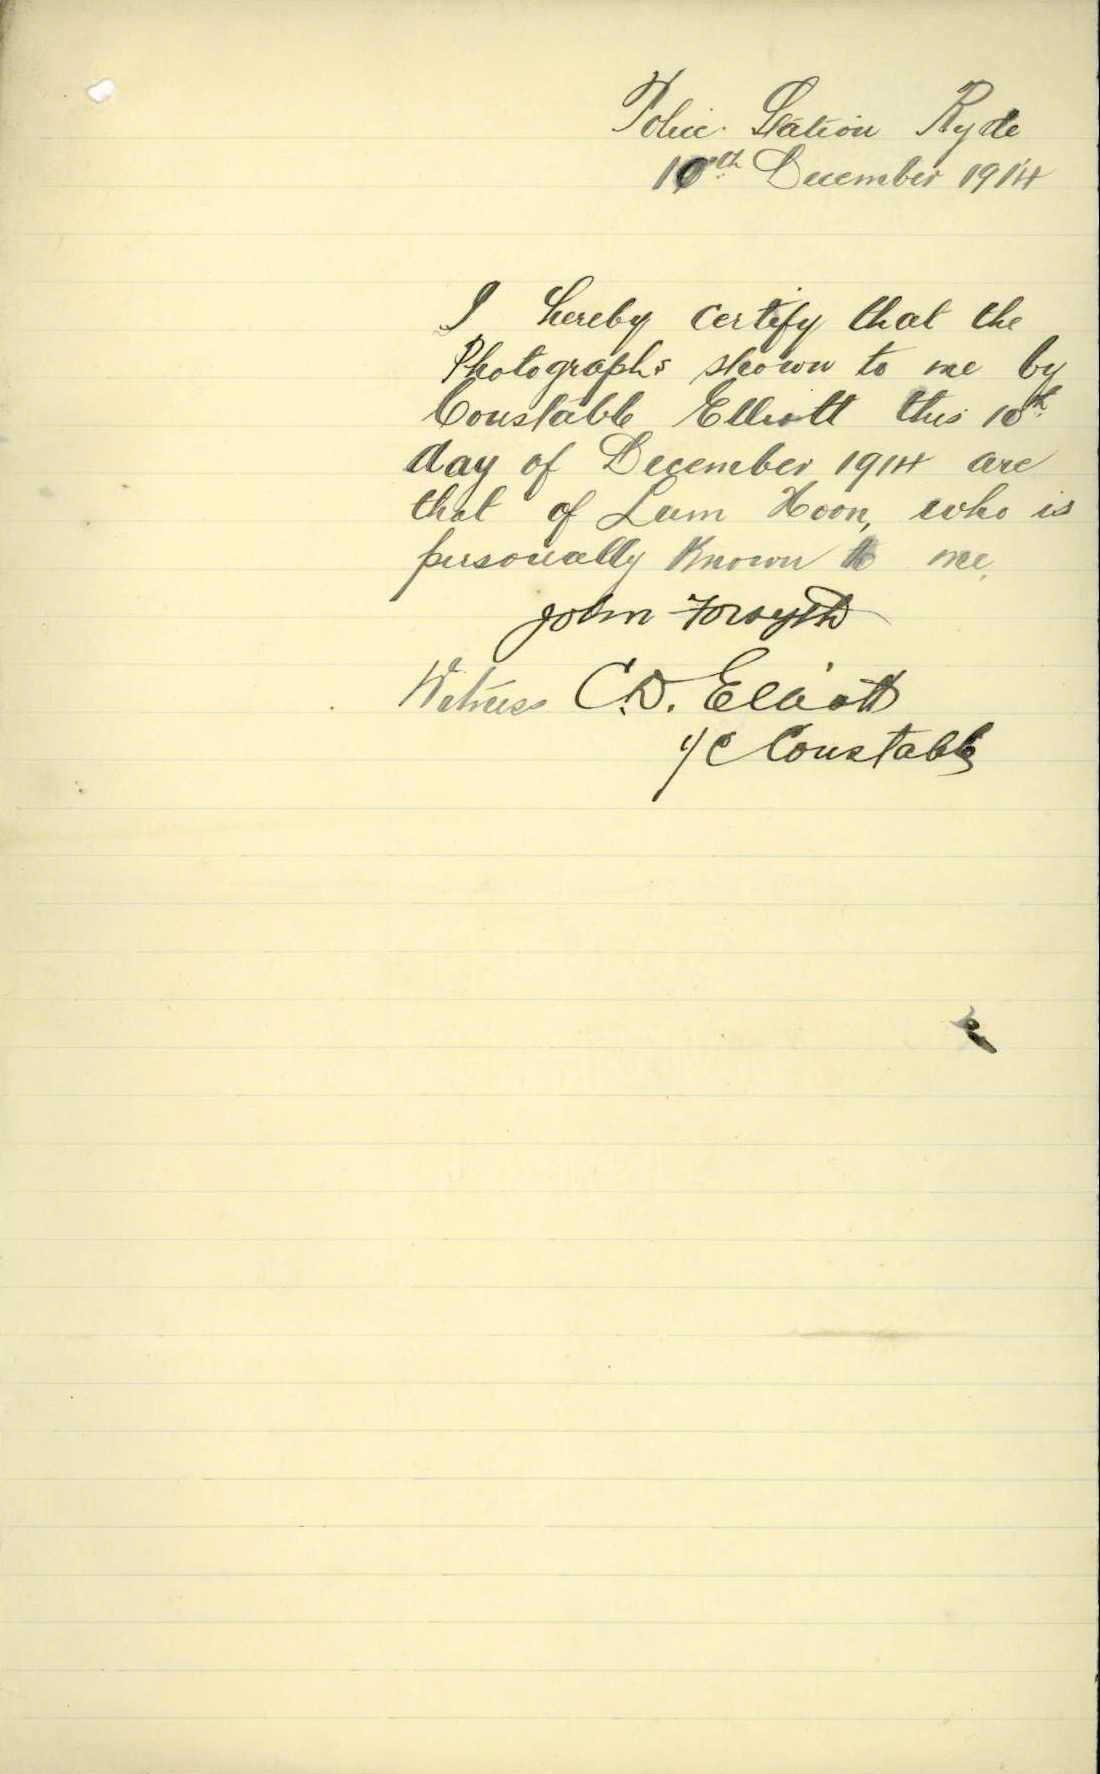 Police Station Ryde
10th December 1914
I hereby certify that the
Photographs shown to me by
Constable Elliott this 10th
day of December 1914 are
that of Lum Hoon, who is
personally known to me.
John Forsyth
Witness C.D. Elliott
1/C Constable